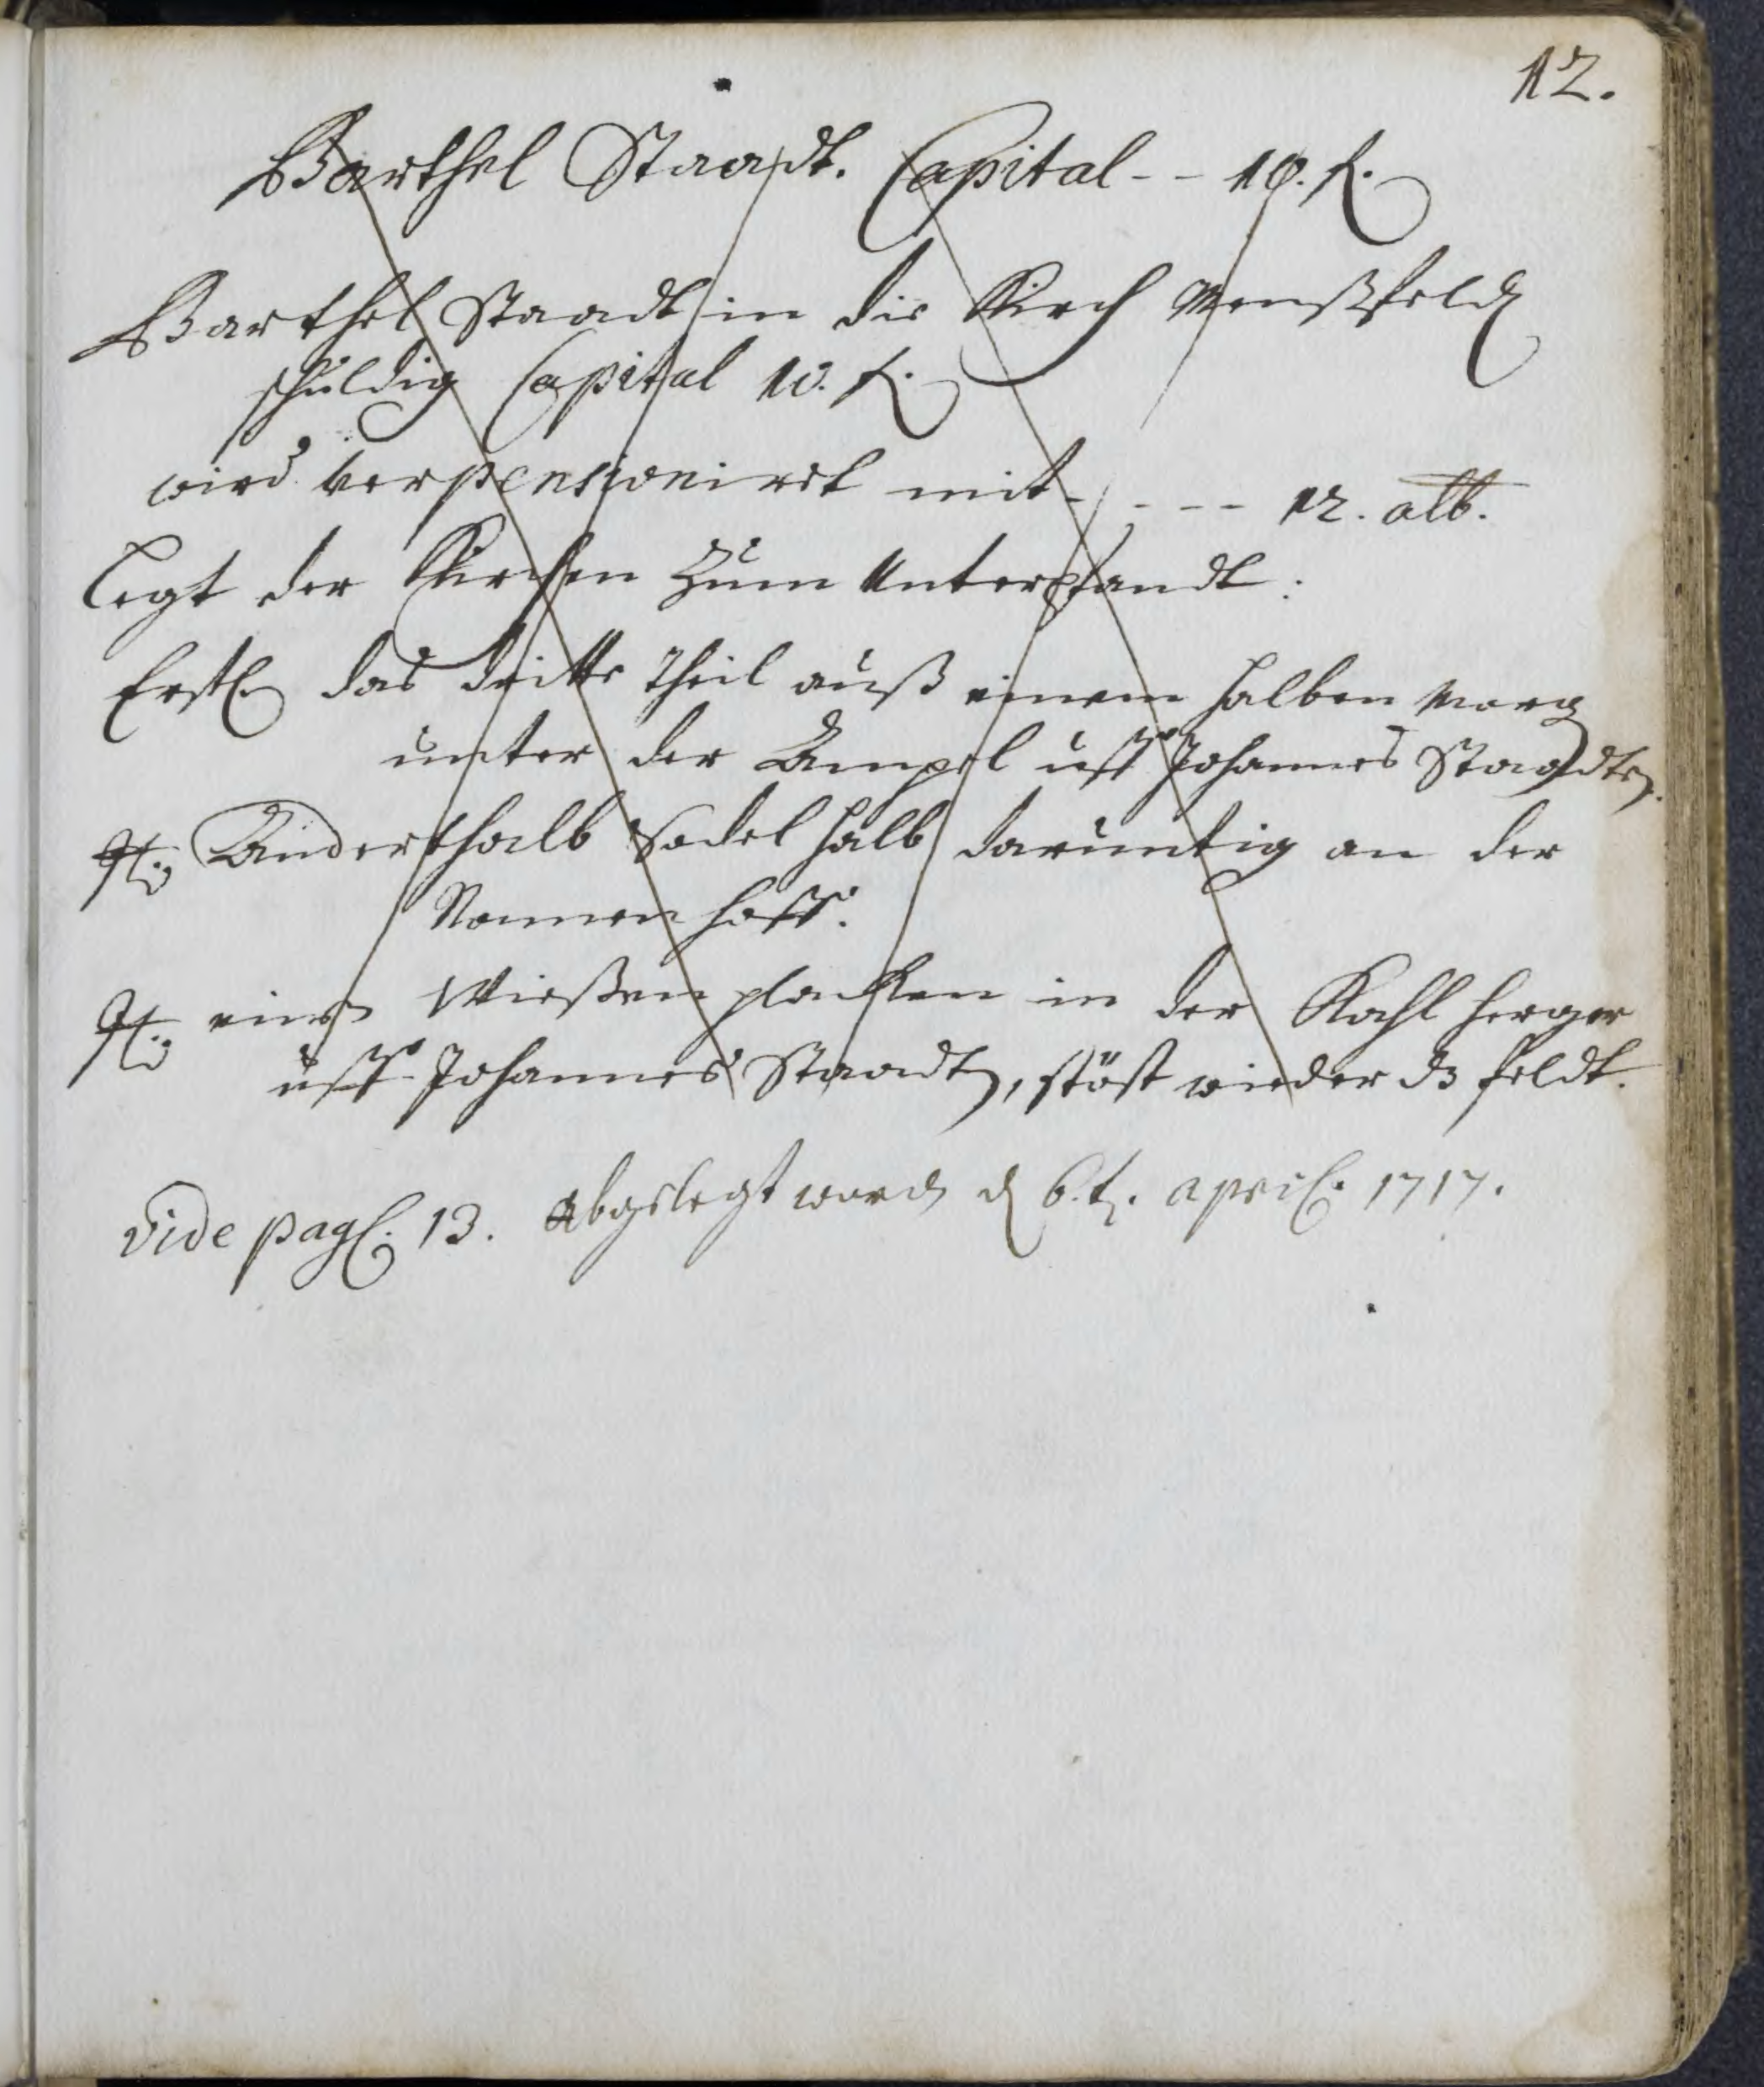 12.
Barthel Staadt. Capital -- 10. f.
Barthel Staadt in die Kirch Menßfeld
schuldig Capital 10. f.
wird verpensioniret mit - - - - 12. alb.
Legt der Kirchen Zum Unterpfandt:
Erstl. das dritte Theil auß einem halben Morg
unter der Ampel uff Johannes Staadte.
It. Anderthalb Sodel halb daruntig an der
Nonnen hoff.
It. einen Wießen placken in der Kahl herger
uff Johannes Staadt, stöst wieder dz feldt.
Vide pag. 13. Abgelegt word d 6.t. april. 1717.